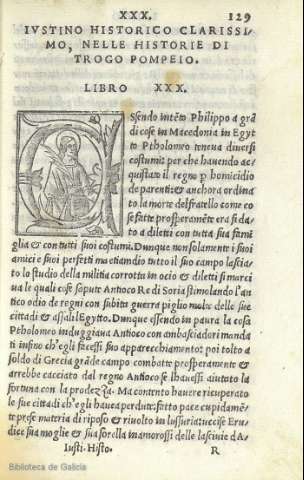 XXX. 129
IVSTINO HISTORICO CLARISSI-
MO, NELLE HISTORIE DI
TROGO POMPEIO.
LIBRO XXX.
Ssendo intẽto Philippo a grã
di cose in Macedonia in Egyt
to Ptholomeo teneua diuersi
costumi: per che hauendo ac-
quistato il regno p homicidio
de parenti: & anchora ordina
to la morte del fratello come co
se fatte prosperamẽte era si da-
to a diletti con tutta sua fami
glia & con tutti suoi costumi. Dunque non solamente i suoi
amici e suoi perfetti ma etiandio tutto il suo campo lascia-
to lo studio della militia corrotto in ocio & diletti si marci
ua le quali cose sapute Antioco Re di Soria stimolando l'an
tico odio de regni con subita guerra piglio molte delle sue
cittadi & assali l'Egytto. Dunque essendo in paura la cosa
Ptholomeo indugiaua Antioco con ambasciadori manda
ti insino ch'egli facessi suo apparecchiamento: poi tolto a
soldo di Grecia grãde campo combatte prosperamente &
arrebbe cacciato dal regno Antioco se l'hauessi aiutato la
fortuna con la prodezza. Ma contento hauere ricuperato
le sue cittadi ch'egli hauea perdute: fatto pace cupidamẽ-
te prese materia di riposo & riuolto in lussuria: uccise Eru-
dice sua moglie & sua sorella inamorossi delle lasciuie d'A-
Iusti. Histo. R
Biblioteca de Galicia